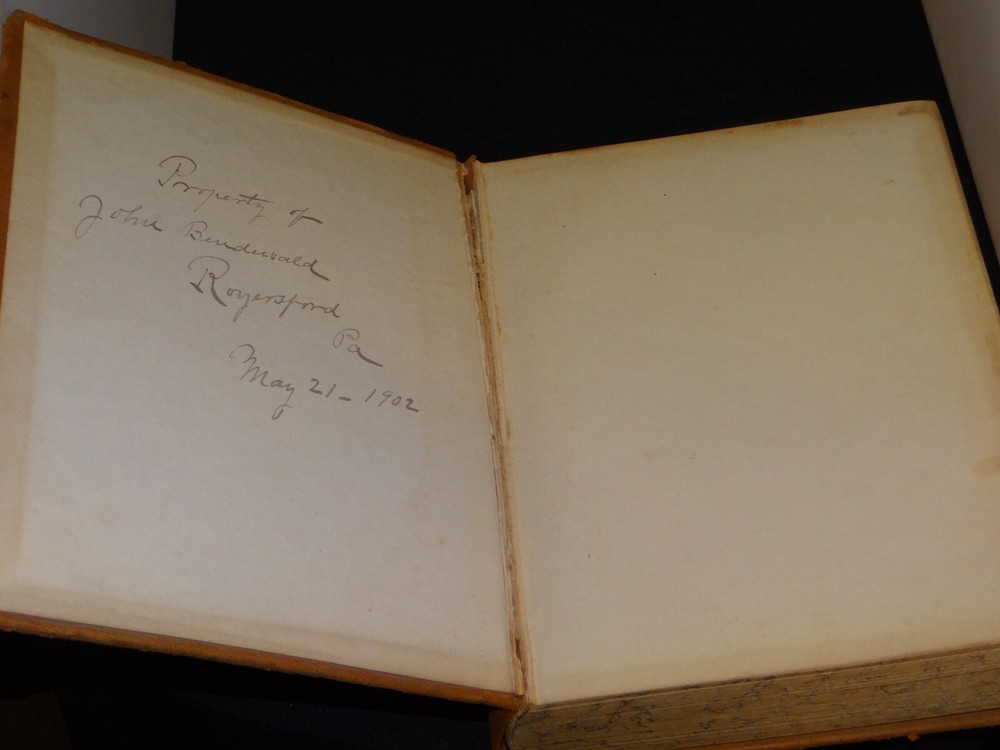 Property of
John Bendewald
Royersford
Pa
May 21 - 1902